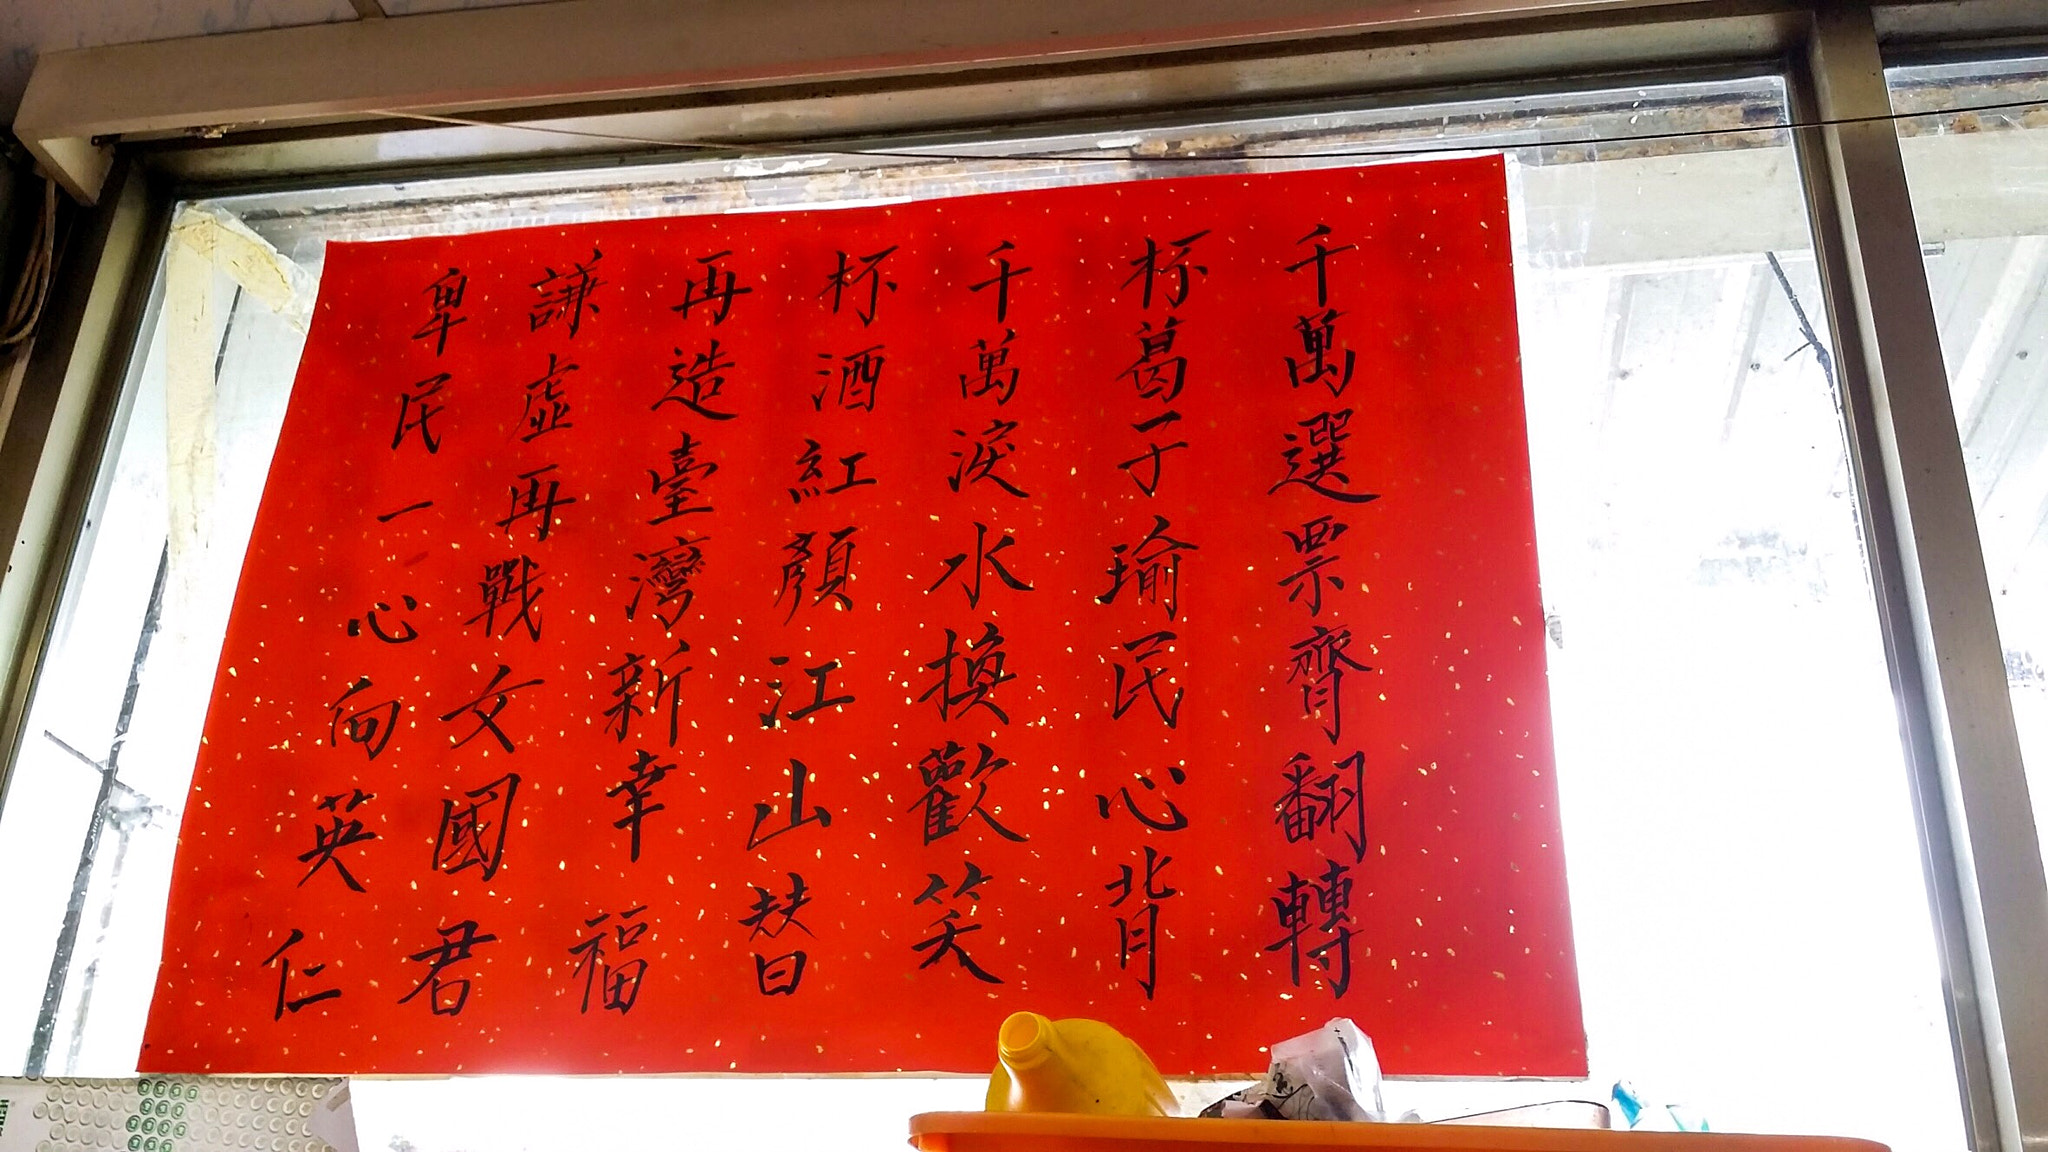 千萬選票齊翻轉
杯葛子瑜民心背
千萬淚水換歡笑
杯酒紅顏江山替
再造臺灣新幸福
謙虛再戰文國君
卑民一心向英仁